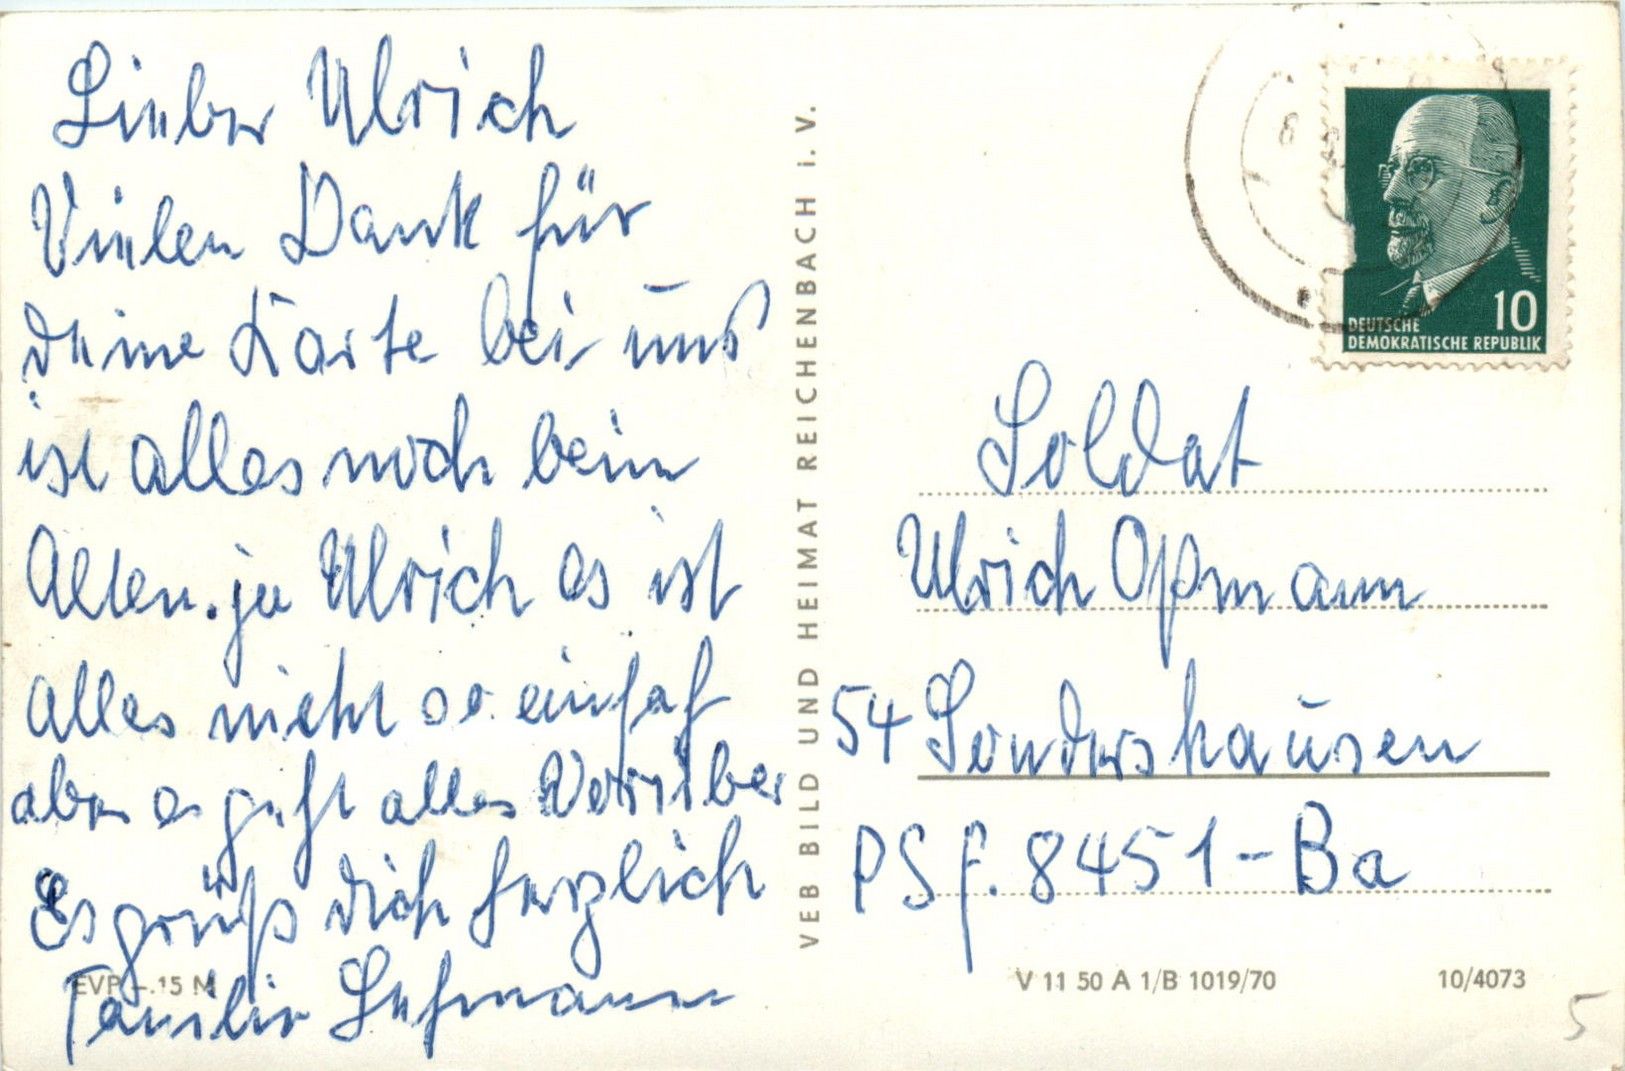 Lieber Ulrich
Vielen Dank für
deine Karte bei uns
ist alles noch beim
Alten. ja Ulrich es ist
alles nicht so einfach
aber es geht alles Vorrüber
Es grüß dich herzlich
Familie Lehmann
EVP –.15 M
VEB BILD UND HEIMAT REICHENBACH i. V.
10
DEUTSCHE
DEMOKRATISCHE REPUBLIK
Soldat
Ulrich Opmann
54 Sondershausen
PSf. 8451-Ba
V 11 50 A 1/B 1019/70
10/4073
5